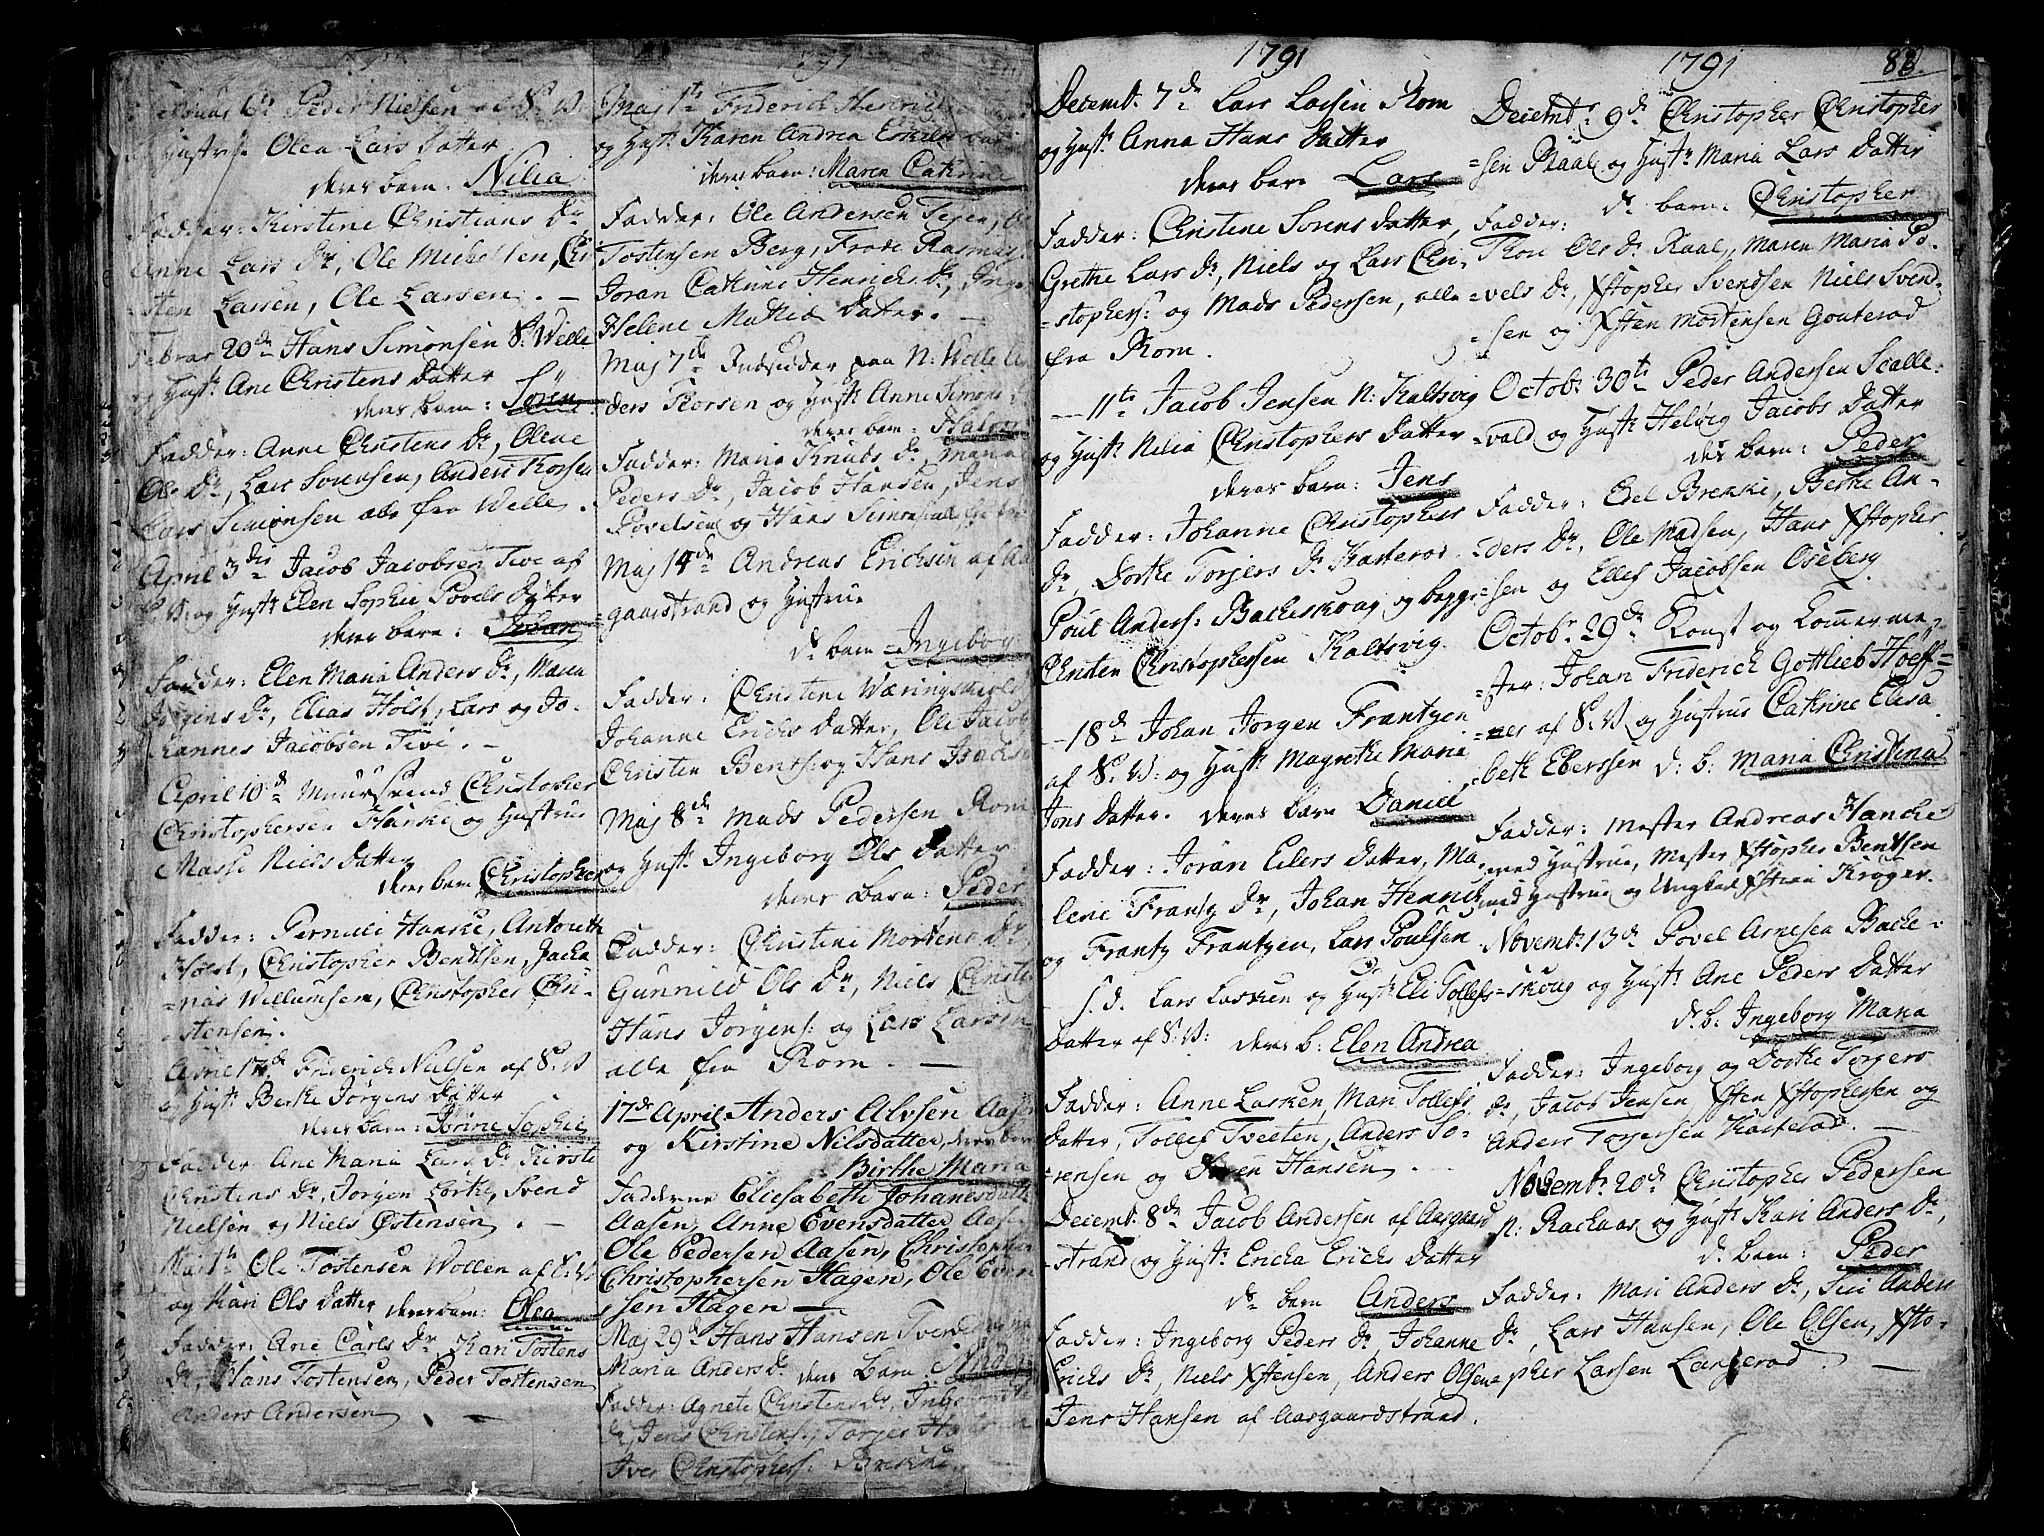 1791
Peder Nielsen af S: W.
Hustrue Olea Lars Datter
deres barn: Nilia
Fadder: Kirstine Christians Dr
Anne Lars Dr, Ole Michelsen, Chri
sten Larsen, Ole Larsen. —
Febrar 20de Hans Simonsen S: Welle
og Hust: Ane Christens Datter
deres barn: Sören
Fadder: Anne Christens Dr, Olene
Ols Dr, Lars Sorensen, Anders Thorsen
Lars Simonsen alle fra Welle.
April 3die Jacob Jacobsen Tive af
S: W. og Hust: Elen Sophie Povels Datter
deres barn: Johan
Fadder: Elen Maria Anders Dr, Maren
Jörgens Dr, Elias Holst, Lars og Jo-
hannes Jacobsen Tivi. —
April 10de Muursvend Christopher
Christophersen Hanske og Hustrue
Masse Niels Datter
deres barn Christopher
Fadder: Pernille Hanske, Antonette
Holst, Christopher Bendtsen, Jacha
=rias Willumsen, Christopher Chri-
=stensen.
April 17de Friderich Nielsen af S: W
og Hust: Berthe Jörgens Datter
deres barn: Sophie
Fadder: Ane Maria Lars Dr, Kirste
Christens Dr, Jörgen Lörke, Svend
Nielsen og Niels Östensen. —
Ole Tostensen Wollen af S: W.
og Kari Ols Datter deres barn: Olea
Fadder: Ane Carls Dr, Kari Tostens
Dr, Hans Tostensen, Peder Tostensen
Anders Andersen. —
1791
Maj 1te Friderich Henrich
og Hust: Karen Andrea
deres barn: Maren Cathrine
Fadder: Ole Andersen
Tostensen Berg, Frode Rasmus
Joran Cathrine Henrichs Dr,
Helene Mathis Datter. —
Maj 7de Indsidder paa N: Welle An
ders Thorsen og Hust: Anne Simons
deres barn: Halvor
Fadder: Maria Knuds Dr, Maria
Peders Dr, Jacob Hansen, Jens
Povelsen og Hans Simonsen
Maj 14de Andreas Erichsen af Aas
=gaardstrand og Hustrue
d: barn Ingeborg
Fadder: Christine Wæringsaasen
Johanne Erichs Datter, Ole Jacob
Christen Bents: og Hans Jacobsen
Maj 8de Mads Pedersen Rom
og Hust: Ingeborg Ols Datter
deres Barn: Peder
Fadder: Christine Mortens Dr
Gunnild Ols Dr, Niels Christen
Hans Jörgens: og Lars Larsen
alle fra Rom. —
17de April Anders Alvsen Aasen
og Kirstine Nilsdatter, deres barn
Birthe Maria
Fadderne Eliesabeth Johanesdatter
Aasen, Anne Evensdatter Aasen
Ole Pedersen Aasen, Christopher
Christophersen Hagen, Ole Even
sen Hagen —
Maj 29de Hans Hansen
Maria Anders Dr deres Barn:
Fadder: Agnete Christens Dr,
Dr, Jens Christens:, Torger
Iver Christophers: Brekke
1791
Decemb: 7de Lars Larsen Rom
og Hust: Anna Hans Datter
deres barn Lars
Fadder: Christine Sorens Datter,
Grethe Lars Dr, Niels og Lars Chri
=stophers: og Mads Pedersen, alle
fra Rom.
— 11te Jacob Jensen N: Kaltsvig
og Hust: Nilia Christophers Datter
deres barn: Jens
Fadder: Johanne Christophers
Dr, Dorthe Torjers Dr Karterod
Poul Anders: Bacheskoug, og begge
Christen Christophersen Kaltsvig.
— 18de Johan Jorgen Frantzen
af S: W: og Hust: Magrethe Maria
Jons Datter. deres barn Daniel
Fadder: Joran Eilers Datter, Ma,
lene Frantz Dr, Johan Henrich
og Frantz Frantzen, Lars Poulsen
s. d. Lars Larsen og Hust: Eli Tollefs
Datter af S: W: deres b: Elen Andrea
Fadder: Anne Larsen, Mari Tollefs
Datter, Tollef Tveten, Anders So-
=rensen og Soren Hansen.
Decemb: 8de Jacob Andersen af Aasgaard
=strand og Hust: Ericka Erichs Datter
ds barn Anders
Fadder: Ingeborg Peders Dr, Johanne
Erichs Dr, Niels Xstensen, Anders Olsen
Jens Hansen af Aasgaardstrand.
1791
88.
Decembr 9de Christopher Christopher
=sen Raael og Hustr Maria Lars Datter
ds barn: Christopher
Fadder:
Thore Ols Dr Raael, Maren Maria Po-
=vels Dr, Xstopher Svendsen Niels Svend-
=sen og Xsten Mortensen Gouterod
Octobr 30te Peder Andersen Scalle-
=vold og Hustr Helvig Jacobs Datter
des barn: Peder
Fadder: Edel Brekke, Berthe An-
=ders Dr, Ole Madsen, Hans Xstopher
=sen og Ellef Jacobsen Oseberg
Octobr 29de Konst og Commerme,
=ster: Johan Friderich Gottlieb Hoeff=
=ner af S: W og Hustrue Cathrine Elisa
=beth Eberssen d: b: Maria Christina
Fadder: Mester Andreas Hancke
med Hustrue, Mester Xstopher Bentsen
med Hustrue og Ungkarl Xstian Kröger.
Novembr 13de Povel Arnesen Bache-
=skoug og Hustr Ane Peders Datter
d: b: Ingeborg Maria
Fadder: Ingeborg og Dorthe Torgers
Dr, Jacob Jensen, Xsten Xstophersen og
Anders Torjersen Karterod. —
Novembr 20de Christopher Pedersen
N: Rachaas og Hustr Kari Anders Dr,
ds barn: Peder
Fadder: Mari Anders Dr, Siri Anders
Dr, Lars Hansen, Ole Olsen, Xsto-
pher Larsen Langerod. —